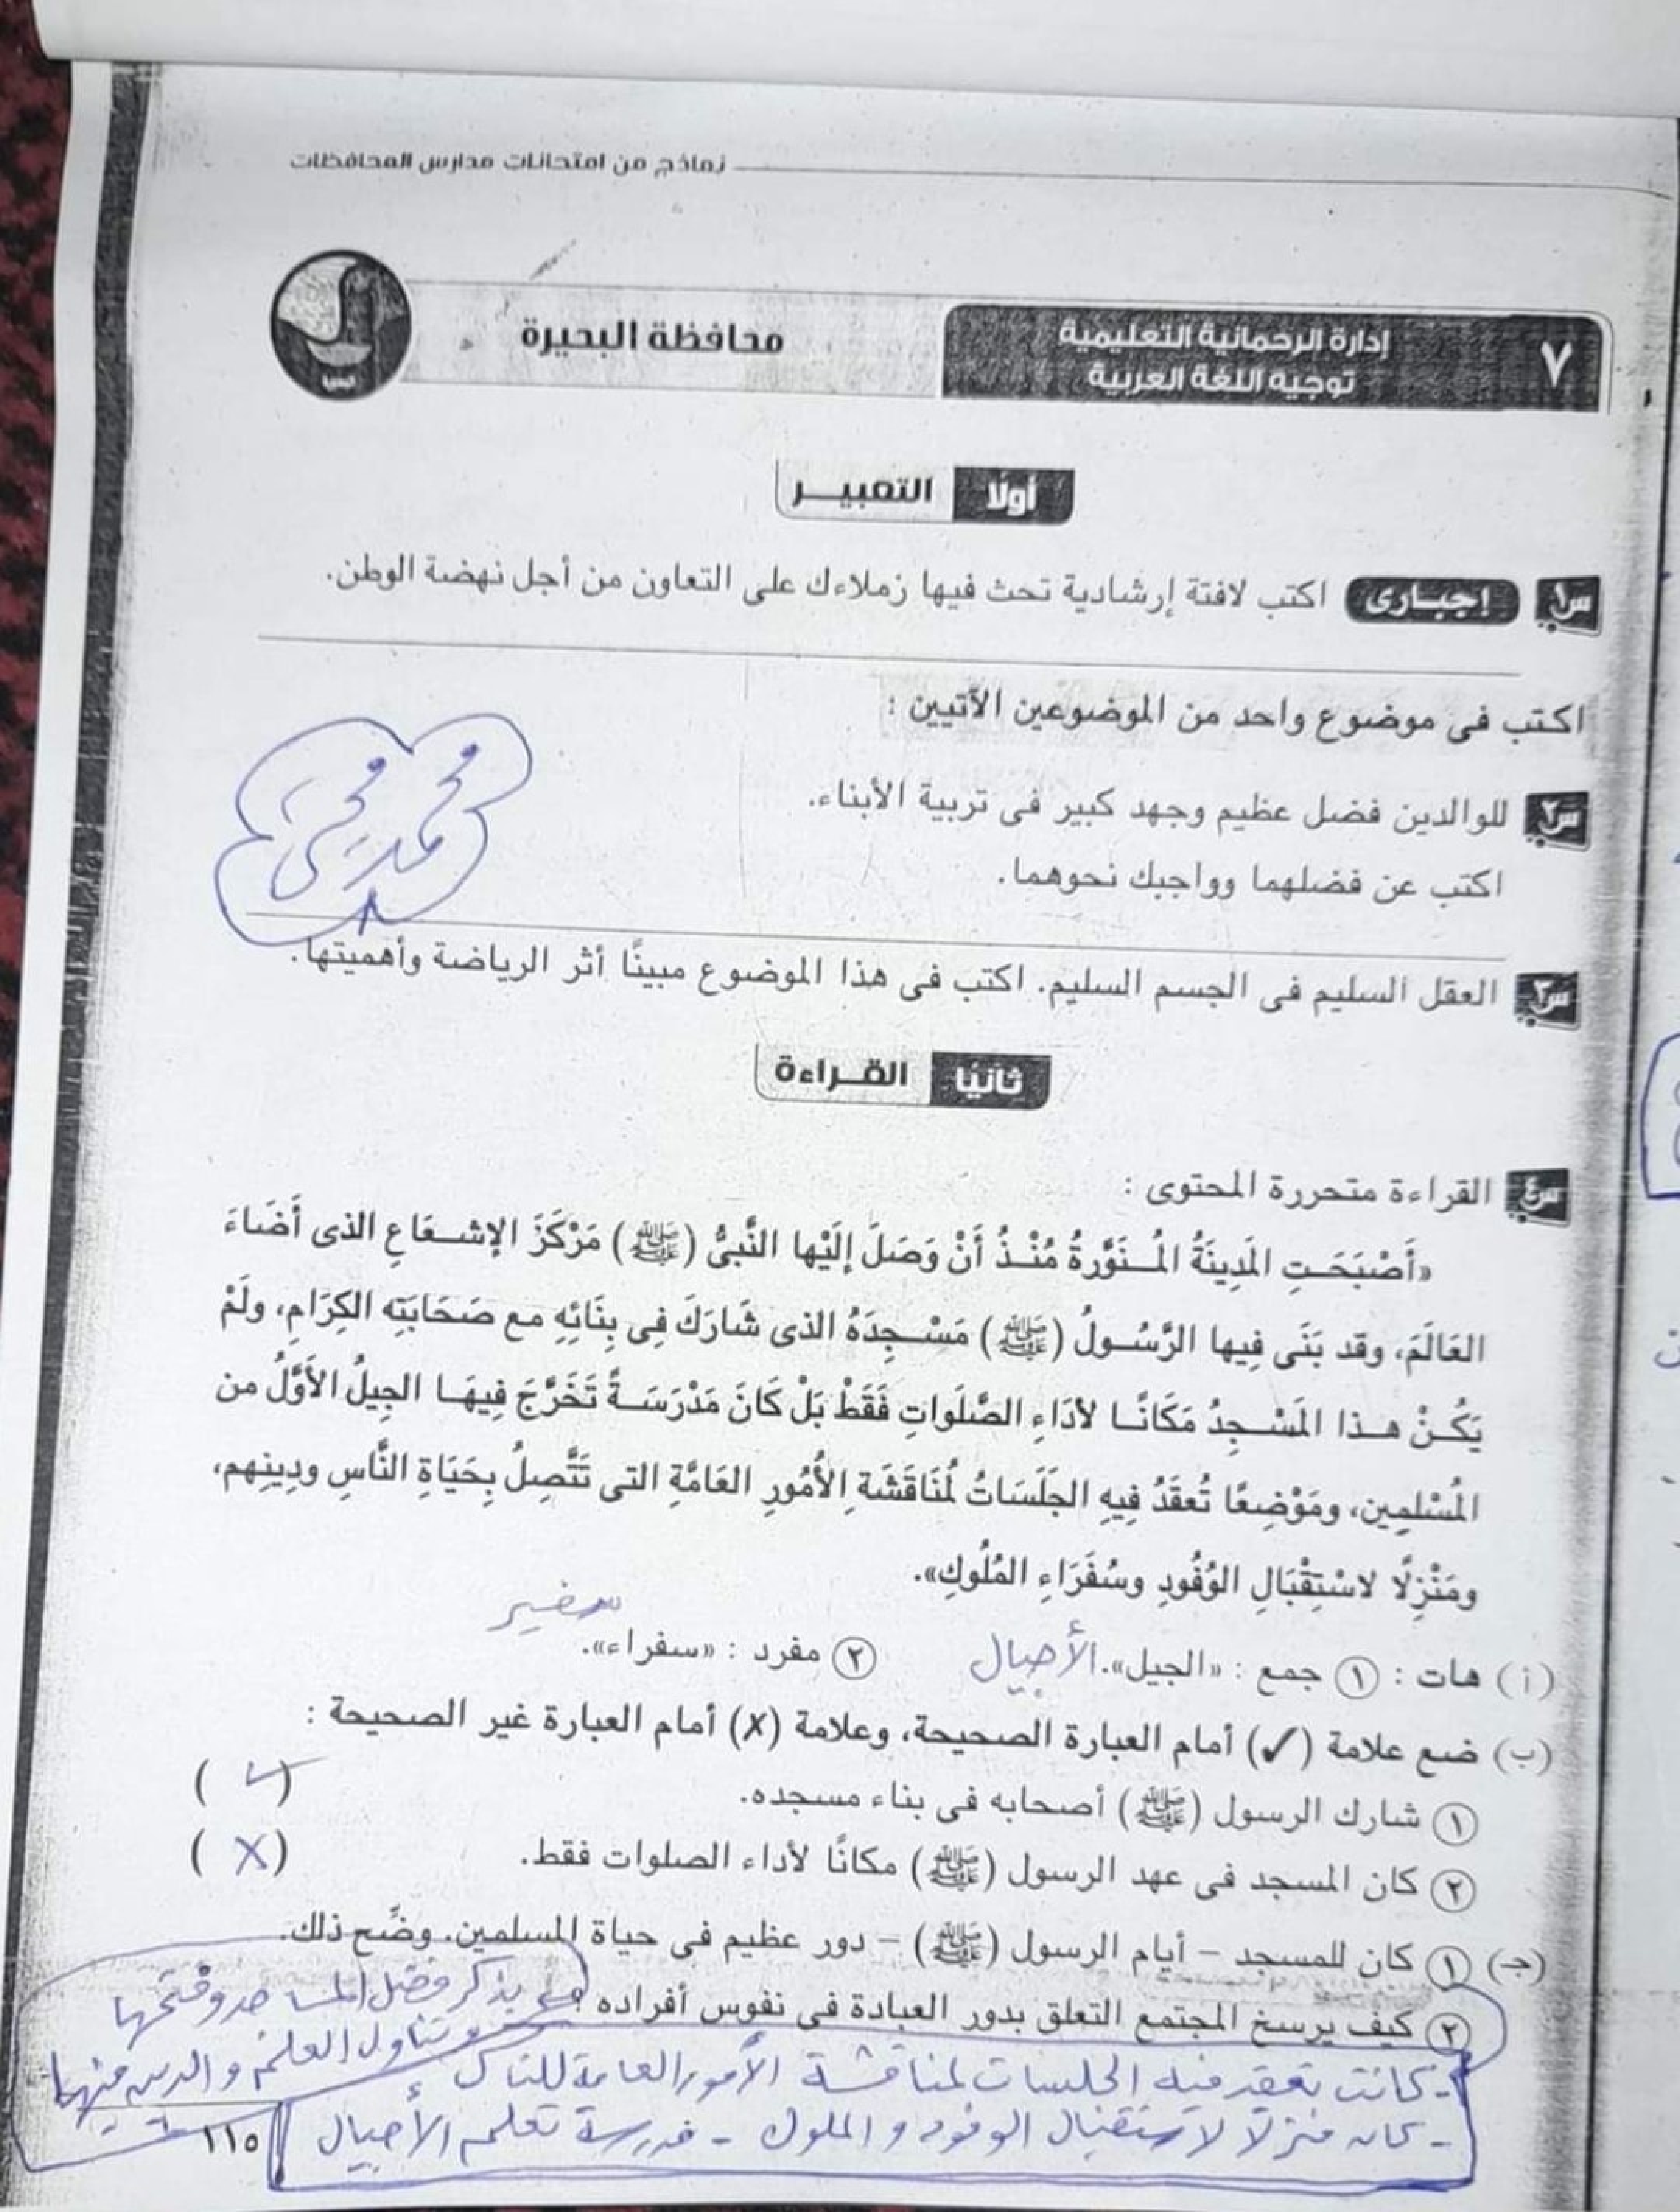 نماذج من امتحانات مدارس المحافظات
٧
إدارة الرحمانية التعليمية
توجيه اللغة العربية
محافظة البحيرة
أولًا التعبيــر
س١ إجبارى اكتب لافتة إرشادية تحث فيها زملاءك على التعاون من أجل نهضة الوطن.
اكتب فى موضوع واحد من الموضوعين الآتيين :
س٢ للوالدين فضل عظيم وجهد كبير فى تربية الأبناء.
اكتب عن فضلهما وواجبك نحوهما.
س٣ العقل السليم فى الجسم السليم. اكتب فى هذا الموضوع مبينًا أثر الرياضة وأهميتها.
محمد
ثانيًا القــراءة
س٤ القراءة متحررة المحتوى :
«أَصْبَحَـتِ المَدِينَةُ المُـنَوَّرةُ مُنْـذُ أَنْ وَصَلَ إِلَيْها النَّبِىُّ (ﷺ) مَرْكَزَ الإشـعَاعِ الذى أَضَاءَ
العَالَمَ، وقد بَنَى فِيها الرَّسُـولُ (ﷺ) مَسْـجِدَهُ الذى شَارَكَ فِى بِنَائِهِ مع صَحَابَتِه الكِرَامِ، ولَمْ
يَكُـنْ هـذا المَسْـجِدُ مَكَانًـا لأدَاءِ الصَّلَواتِ فَقَطْ بَلْ كَانَ مَدْرَسَـةً تَخَرَّجَ فِيهَـا الجِيلُ الأَوَّلُ من
المُسْلِمِين، ومَوْضِعًا تُعقَدُ فِيهِ الجَلَسَاتُ لمُنَاقَشَةِ الأُمُورِ العَامَّةِ التى تَتَّصِلُ بِحَيَاةِ النَّاسِ ودِينِهم،
ومَنْزِلًا لاسْتِقْبَالِ الوُفُودِ وسُفَرَاءِ المُلُوكِ».
( أ ) هات : ① جمع : «الجيل». الأجيال ② مفرد : «سفراء». سفير
(ب) ضع علامة (✓) أمام العبارة الصحيحة، وعلامة (✗) أمام العبارة غير الصحيحة :
① شارك الرسول (ﷺ) أصحابه فى بناء مسجده. ( ✓ )
② كان المسجد فى عهد الرسول (ﷺ) مكانًا لأداء الصلوات فقط. ( X )
(جـ) ① كان للمسجد – أيام الرسول (ﷺ) – دور عظيم فى حياة المسلمين. وضِّح ذلك.
② كيف يرسخ المجتمع التعلق بدور العبادة فى نفوس أفراده ؟
بذكر فضل المساجد وفتحها
وتناول العلم والدين منها
- كانت تعقد فيه الجلسات لمناقشة الأمور العامة للناس
- كان منزلًا لاستقبال الوفود والملوك - مدرسة تعلم الأجيال
١١٥